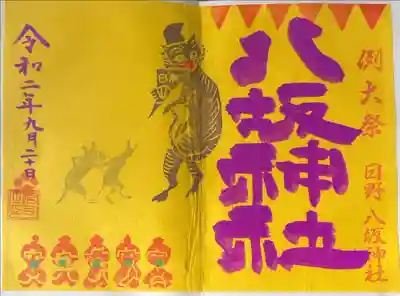 例大祭
日野 八坂神社
八坂神社
令和二年九月二十日